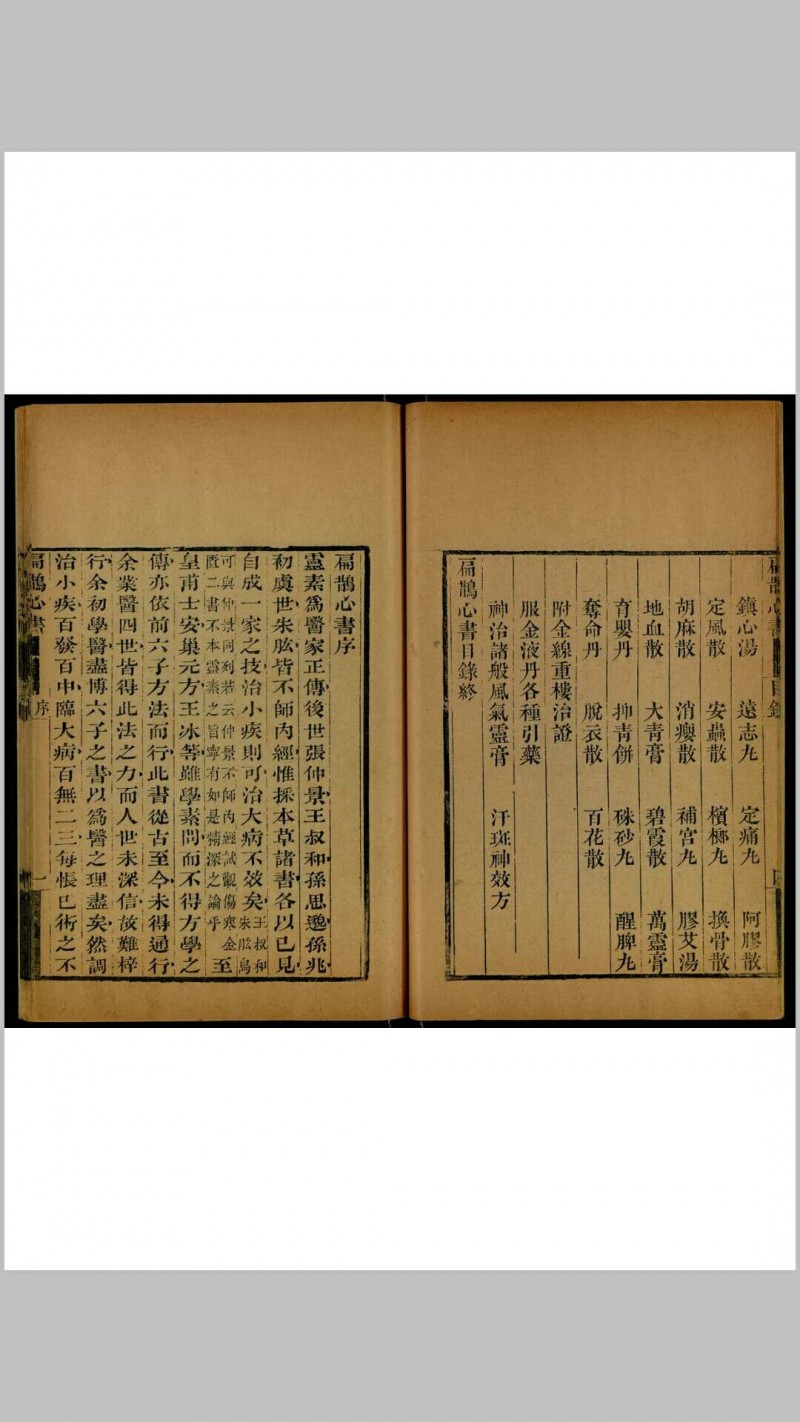 扁鵲心書 目錄
鎮心湯 遠志丸 定痛丸 阿膠散
定風散 安蟲散 檳榔丸 換骨散
胡麻散 消癭散 補宮丸 膠艾湯
地血散 大青膏 碧霞散 萬靈膏
育嬰丹 抑青餅 硃砂丸 醒脾丸
奪命丹 脫衣散 百花散
附金線重樓治證
服金液丹各種引藥
神治諸般風氣靈膏 汗斑神效方
扁鵲心書目錄終
扁鵲心書序
靈素為醫家正傳後世張仲景王叔和孫思邈孫兆
初虞世朱肱皆不師內經惟採本草諸書各以己見
自成一家之技治小疾則可治大病不效矣王叔和朱肱烏
可與仲景同列若云仲景不師內經試觀傷寒金
匱二書不本靈素之旨寧有如是精深之論乎至
皇甫士安巢元方王冰等雖學素問而不得方學之
傳亦依前六子方法而行此書從古至今未得通行
余業醫四世皆得此法之力而人世未深信故難梓
行余初學醫盡博六子之書以為醫之理盡矣然調
治小疾百發百中臨大病百無二三每悵己術之不
扁鵲心書 序 一